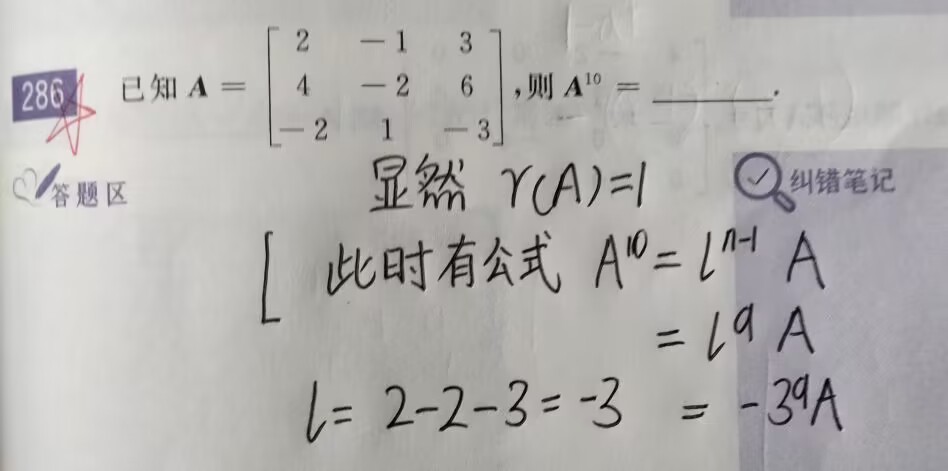 286 已知 A = [ 2 -1 3
4 -2 6
-2 1 -3 ] ,则 A¹⁰ = ________.
答题区
显然 r(A)=1
纠错笔记
[ 此时有公式 A¹⁰ = lⁿ⁻¹ A
= l⁹ A
l = 2-2-3 = -3 = -3⁹A